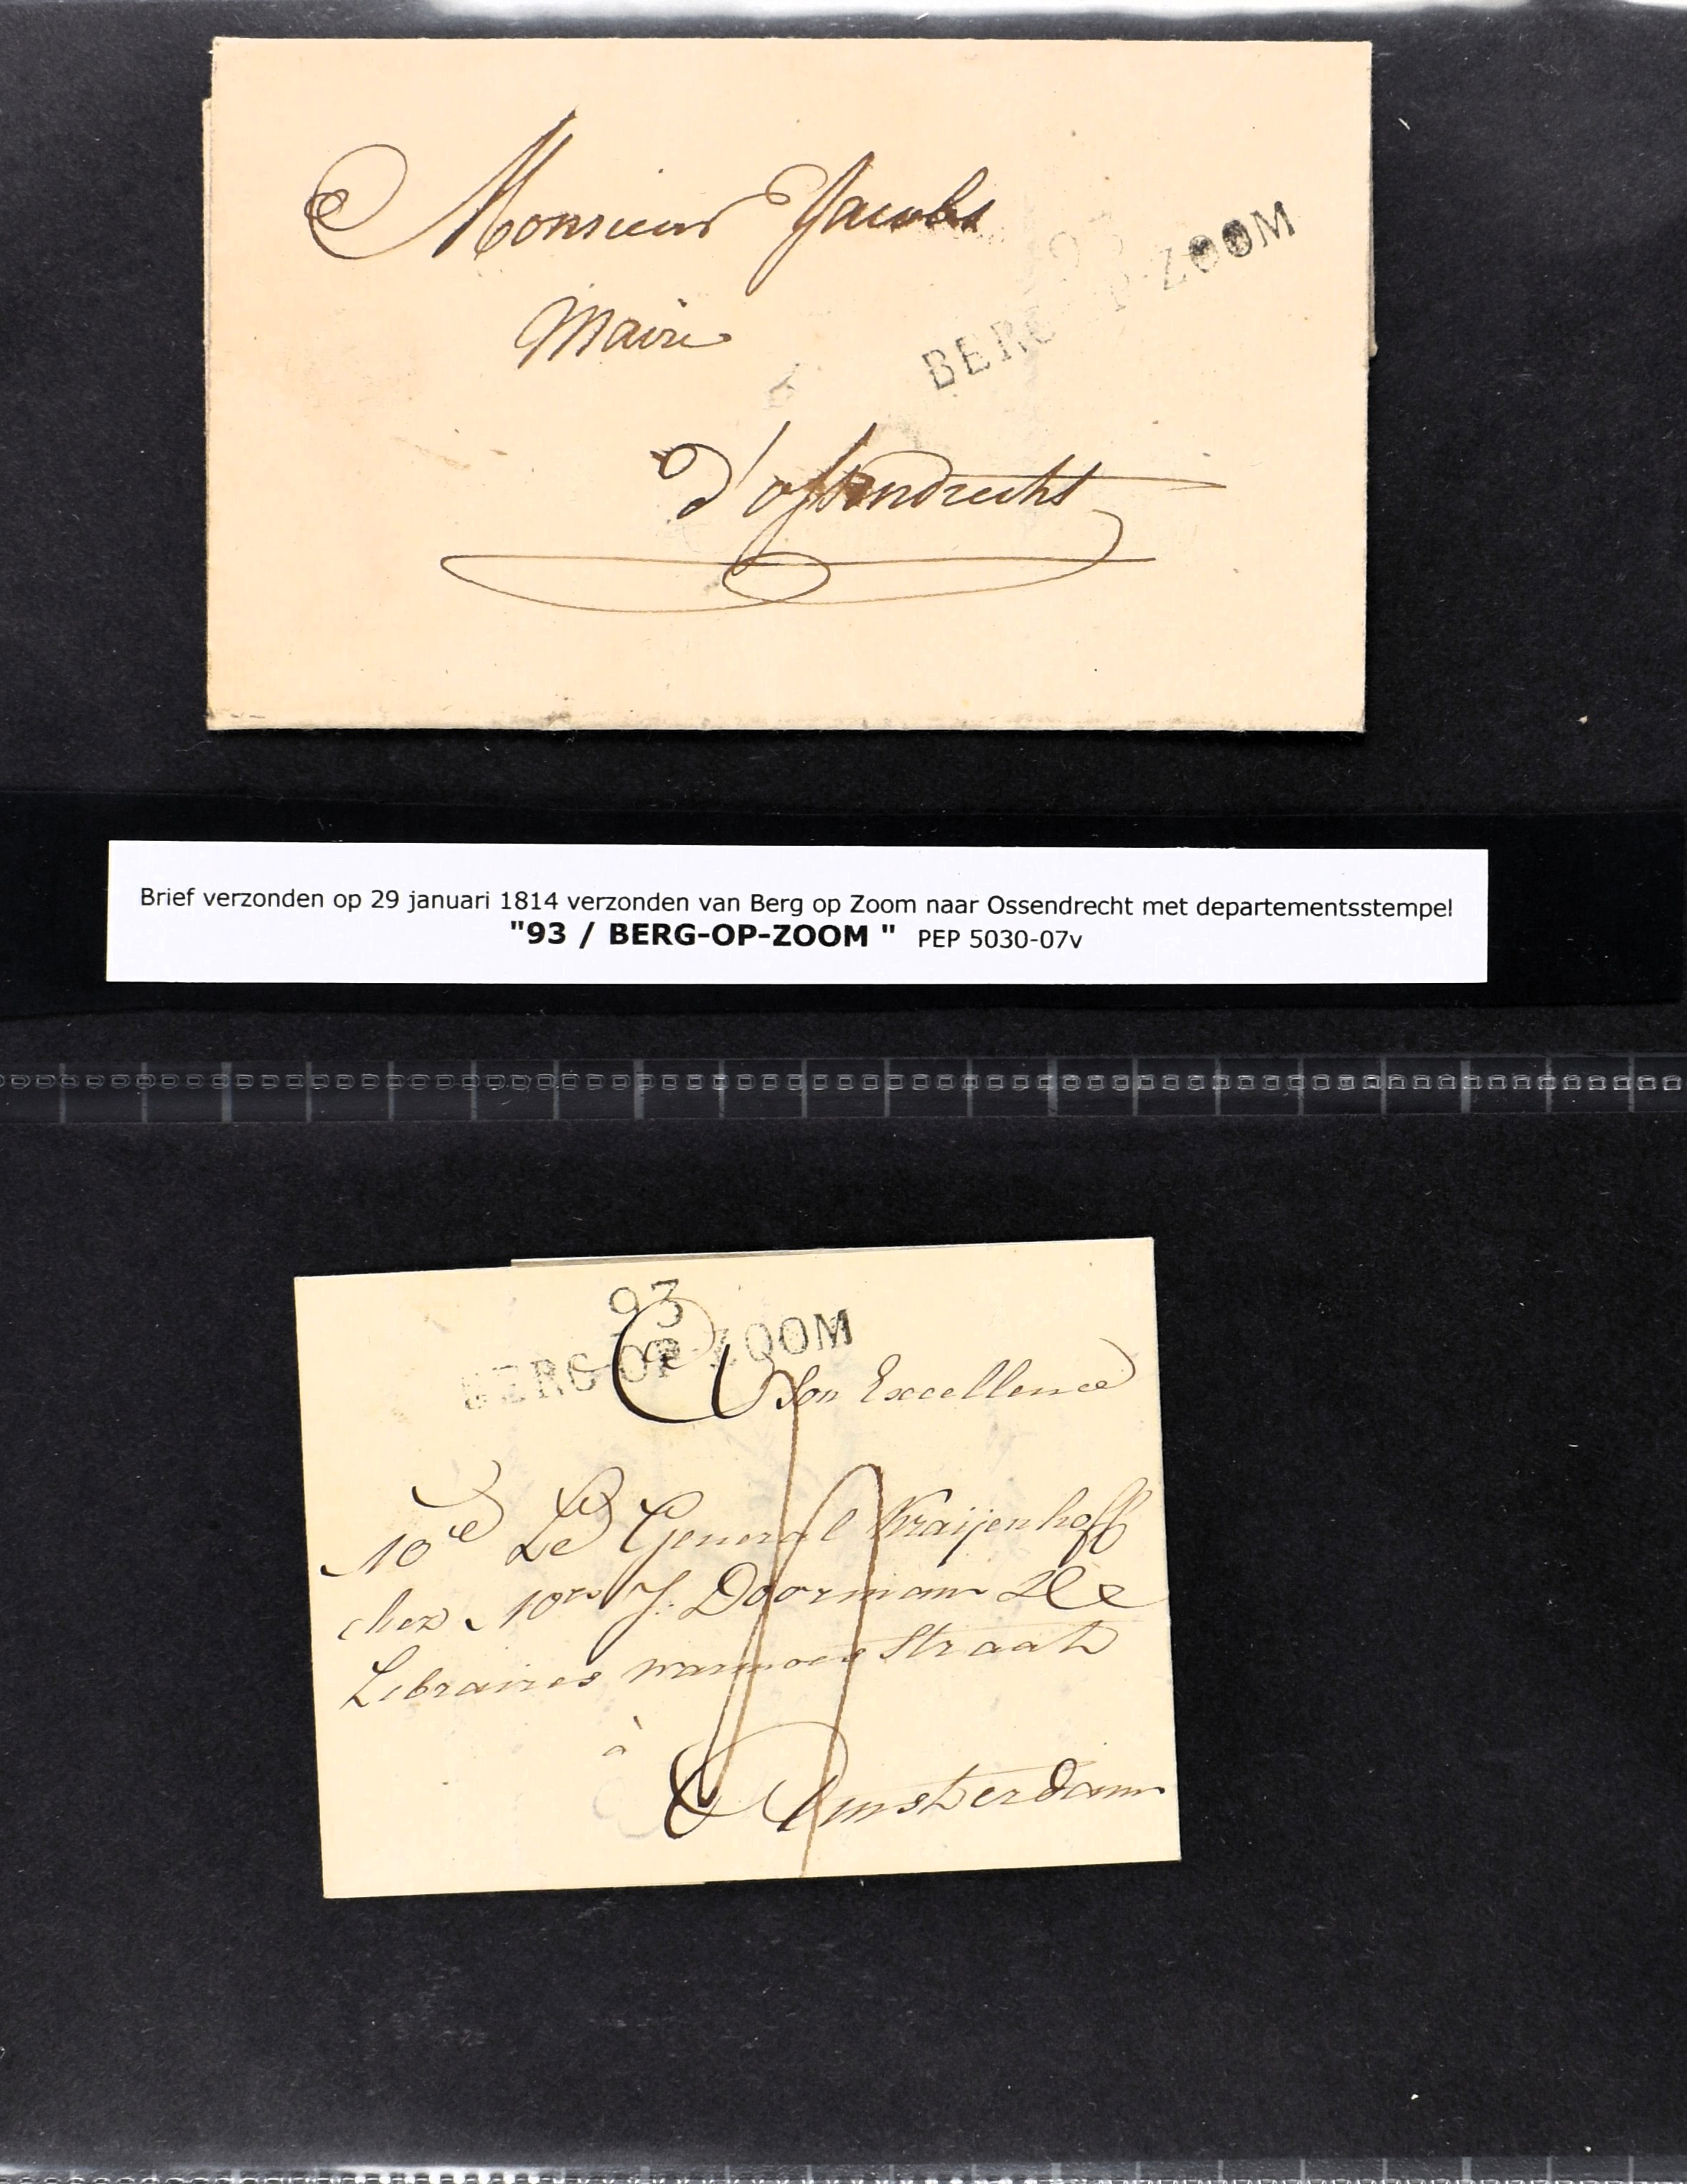 Monsieur Jacobs
93
BERG-OP-ZOOM
Maire
d'ossendrecht
Brief verzonden op 29 januari 1814 verzonden van Berg op Zoom naar Ossendrecht met departementsstempel
"93 / BERG-OP-ZOOM " PEP 5030-07v
93
BERG-OP-ZOOM
A Son Excellence
Le General Kraijenhoff
chez J. Doorman
Libraires warmoes Straat
à
Amsterdam